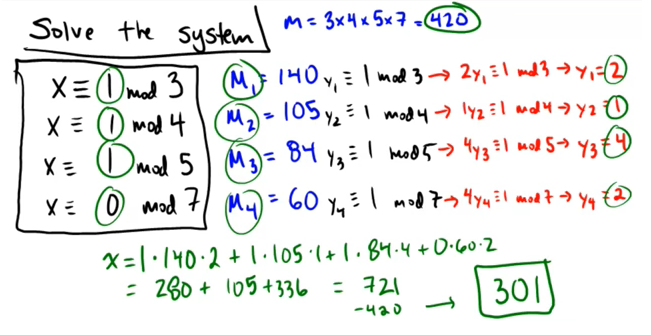 Solve the system
m = 3×4×5×7 = 420
X ≡ 1 mod 3
X ≡ 1 mod 4
X ≡ 1 mod 5
X ≡ 0 mod 7
M₁ = 140 y₁ ≡ 1 mod 3 → 2y₁ ≡ 1 mod 3 → y₁ = 2
M₂ = 105 y₂ ≡ 1 mod 4 → 1y₂ ≡ 1 mod 4 → y₂ = 1
M₃ = 84 y₃ ≡ 1 mod 5 → 4y₃ ≡ 1 mod 5 → y₃ = 4
M₄ = 60 y₄ ≡ 1 mod 7 → 4y₄ ≡ 1 mod 7 → y₄ = 2
x = 1·140·2 + 1·105·1 + 1·84·4 + 0·60·2
= 280 + 105 + 336 = 721
-420 → 301